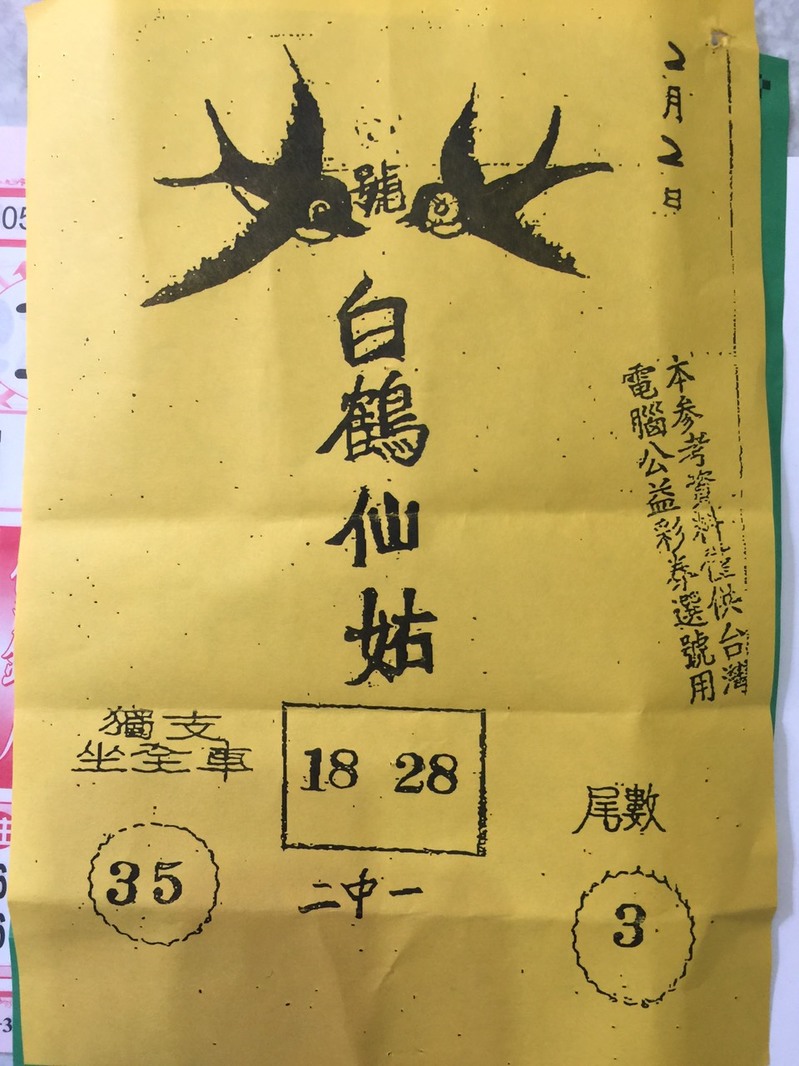 2月2日
號
白鶴仙姑
本參考資料僅供台灣
電腦公益彩券選號用
獨支
坐全車
35
18 28
二中一
尾數
3
05
6
6